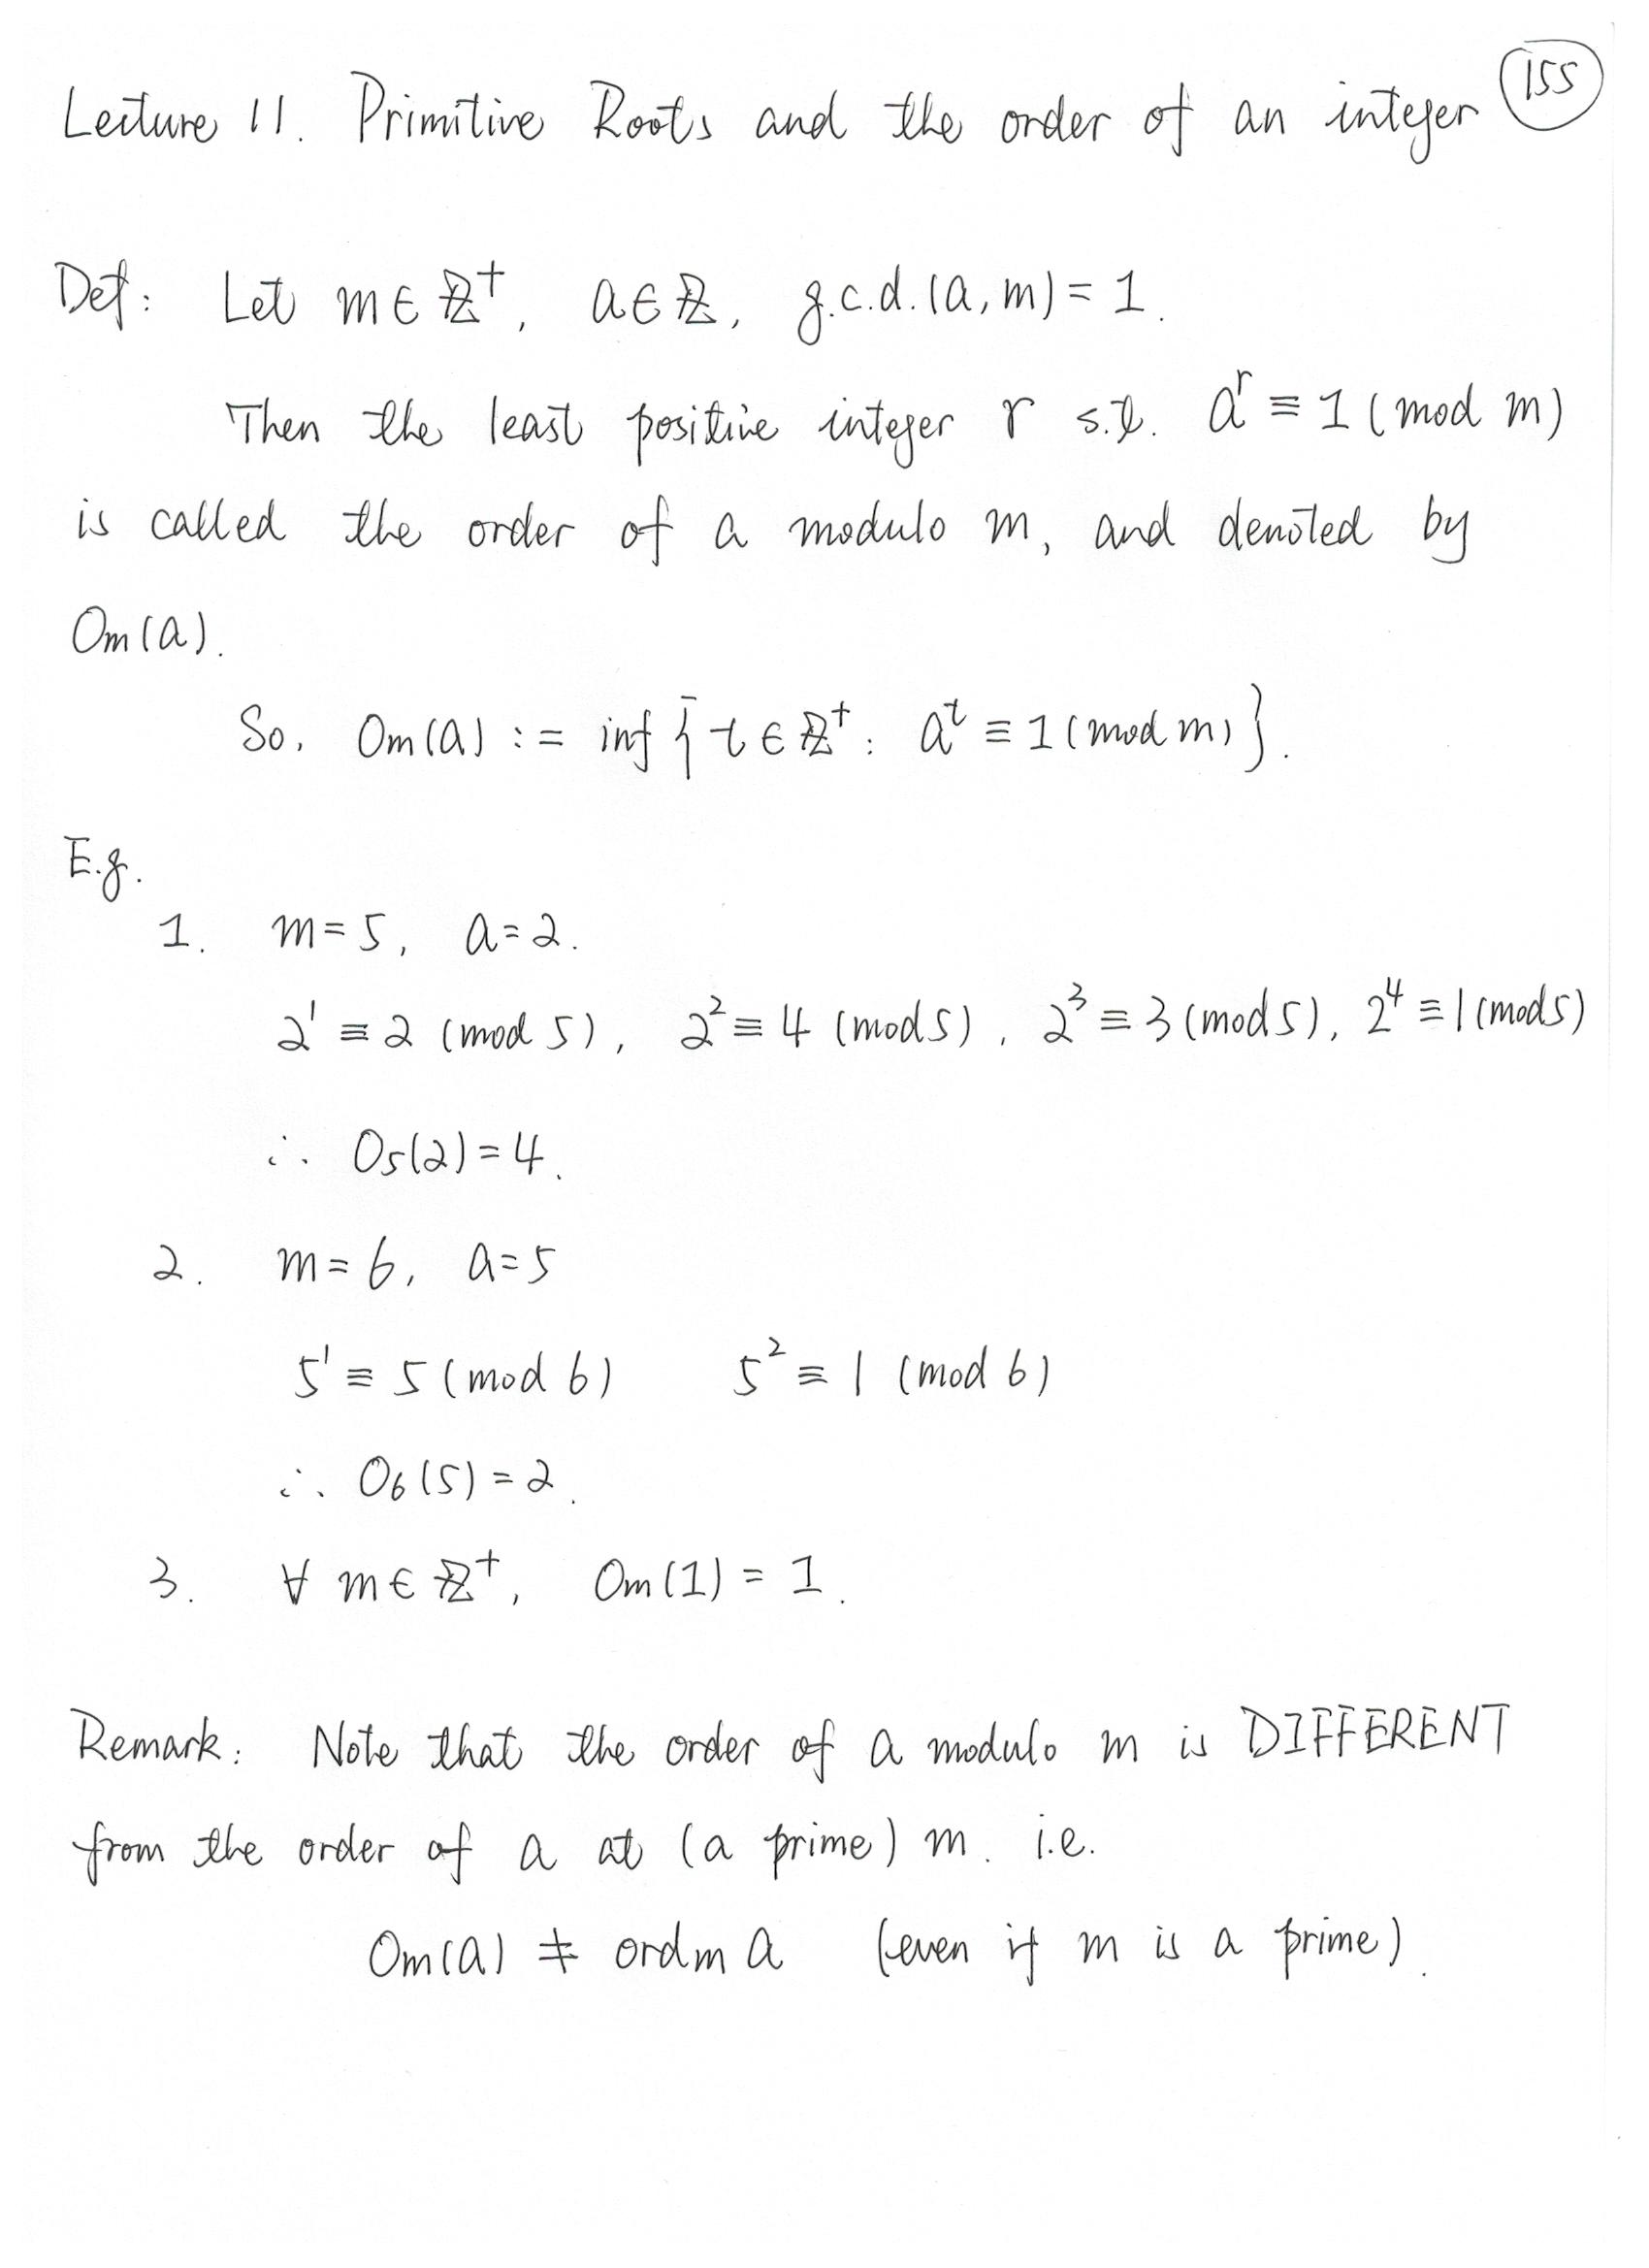 155
Lecture 11. Primitive Roots and the order of an integer
Def: Let m ∈ ℤ⁺, a ∈ ℤ, g.c.d.(a, m) = 1.
Then the least positive integer r s.t. aʳ ≡ 1 (mod m)
is called the order of a modulo m, and denoted by
Om(a).
So, Om(a) := inf { t ∈ ℤ⁺ : aᵗ ≡ 1 (mod m) }.
E.g.
1. m = 5, a = 2.
2¹ ≡ 2 (mod 5), 2² ≡ 4 (mod 5), 2³ ≡ 3 (mod 5), 2⁴ ≡ 1 (mod 5)
∴ O5(2) = 4.
2. m = 6, a = 5
5¹ ≡ 5 (mod 6) 5² ≡ 1 (mod 6)
∴ O6(5) = 2.
3. ∀ m ∈ ℤ⁺, Om(1) = 1.
Remark: Note that the order of a modulo m is DIFFERENT
from the order of a at (a prime) m. i.e.
Om(a) ≠ ordm a (even if m is a prime).